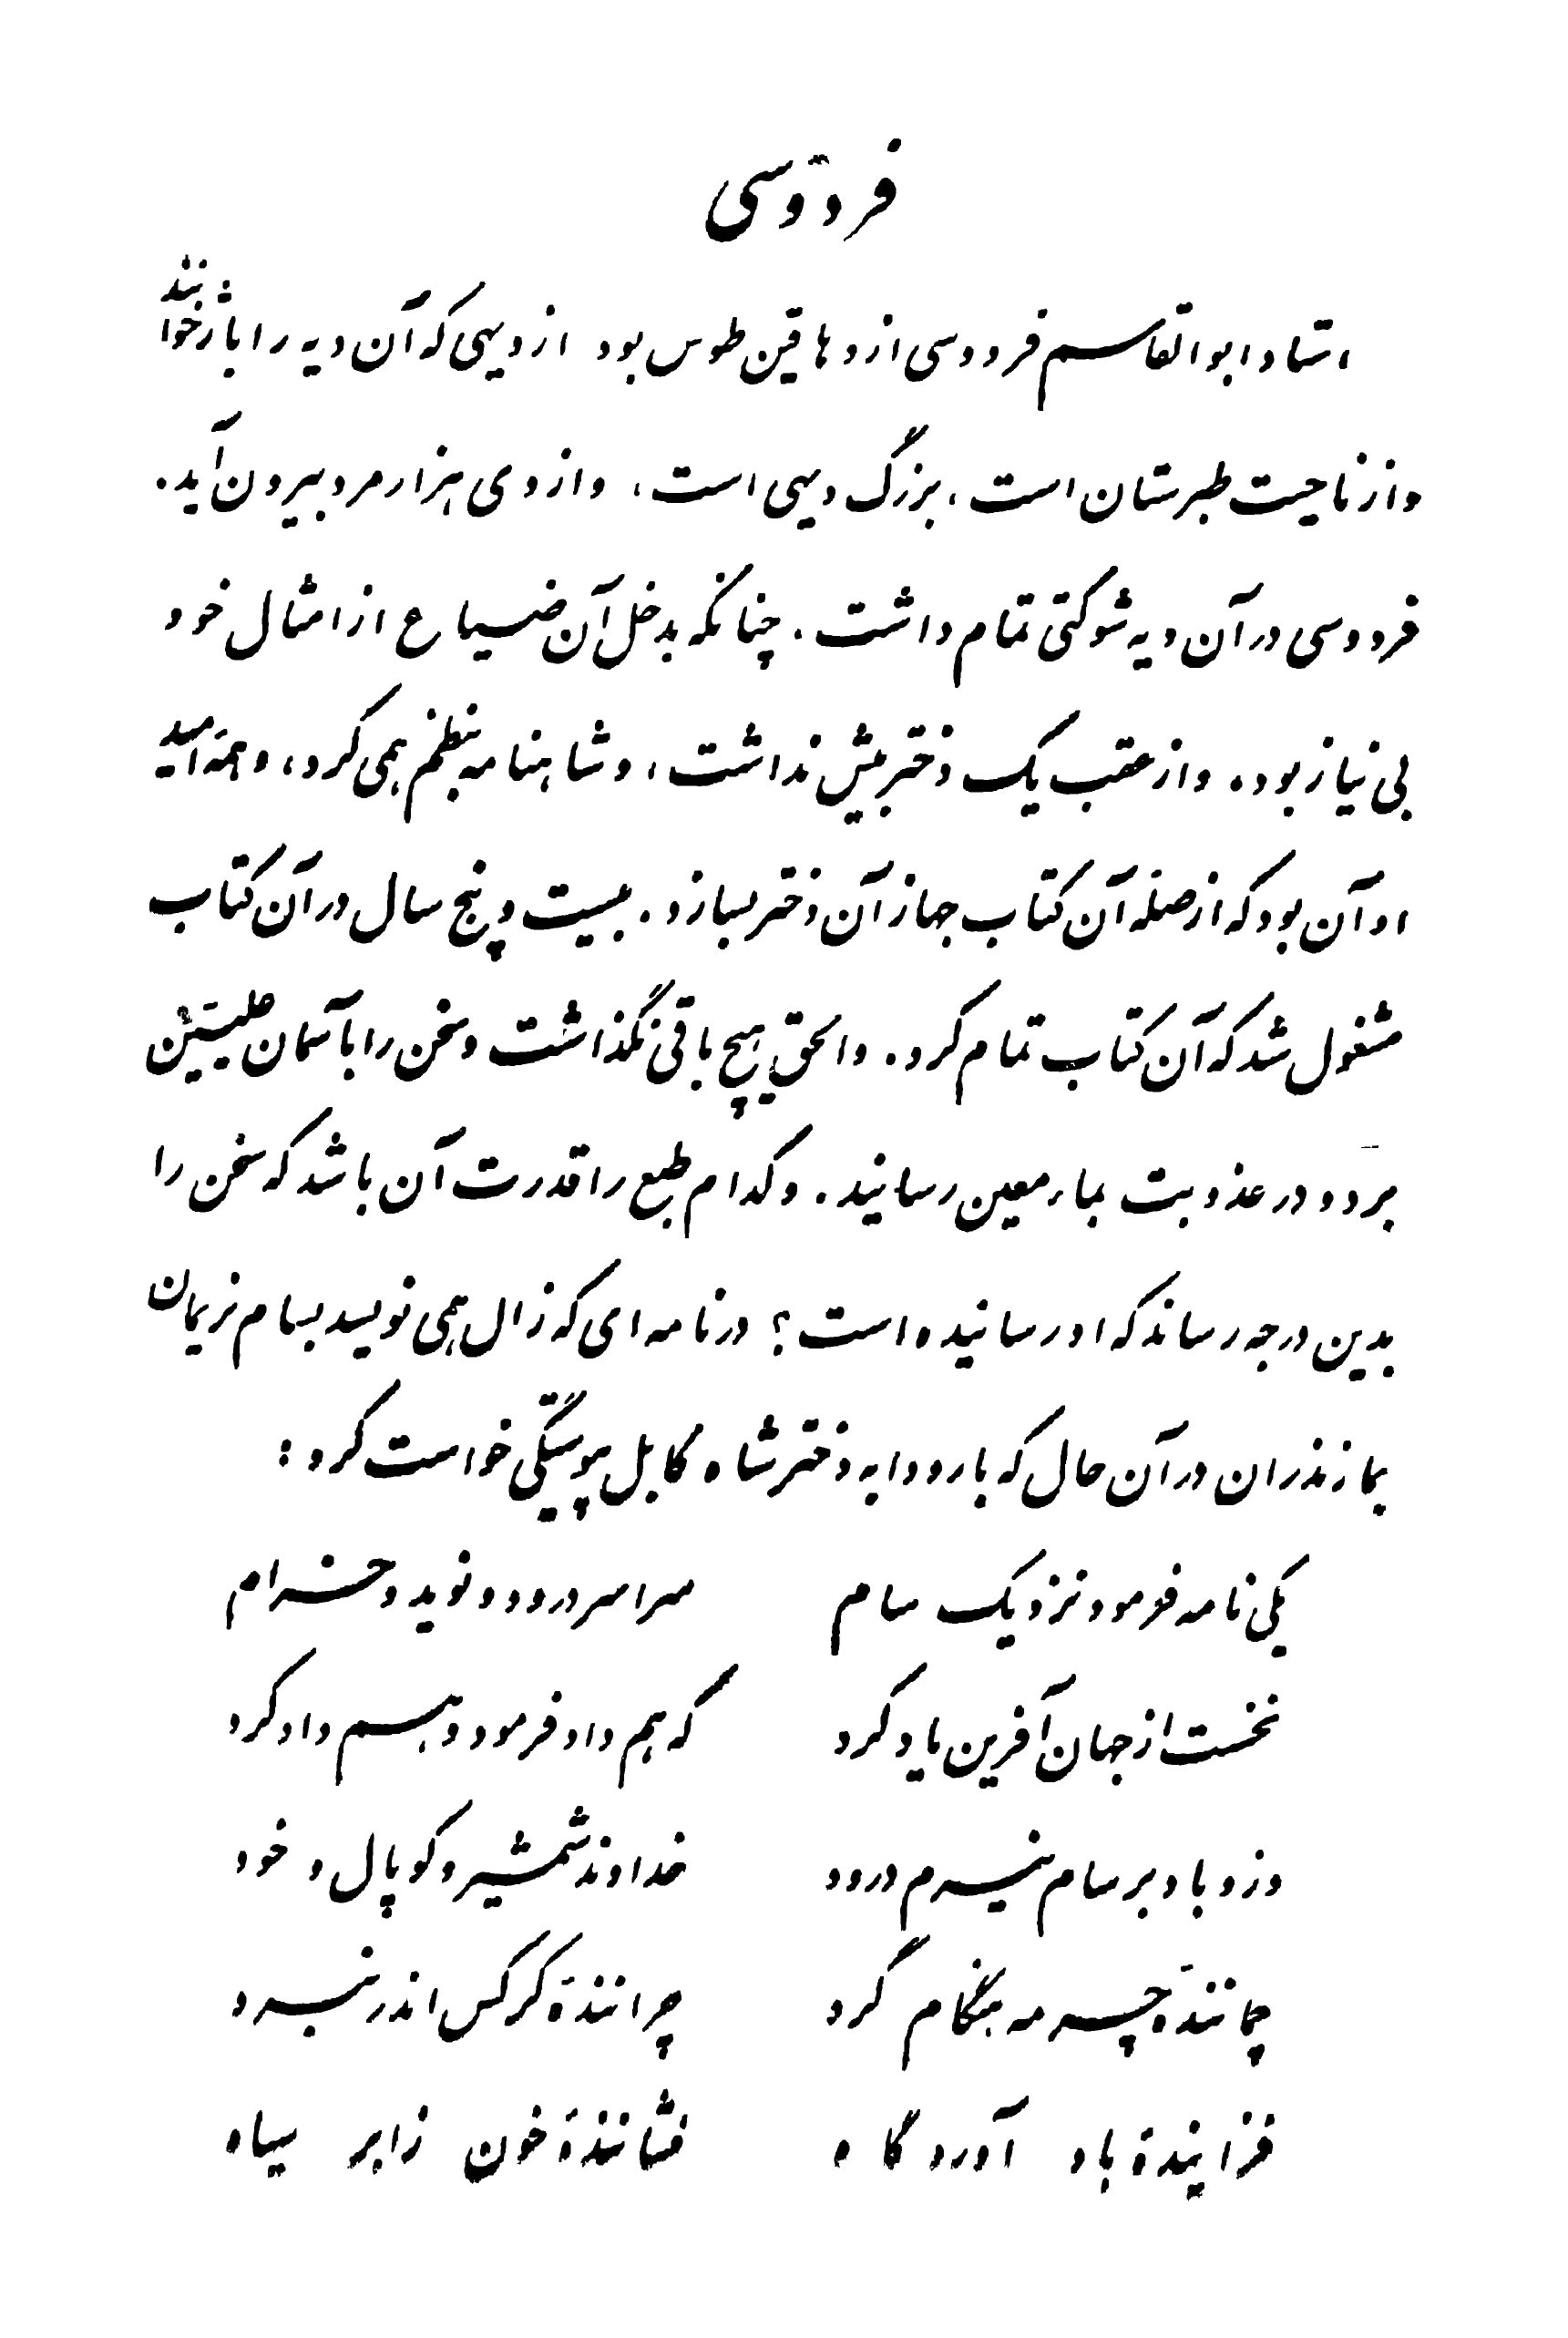 فردوسی
استاد ابوالقاسم فردوسی از دهاقین طوس بود از دیهی که آن دیه را باژ خوانند
و از ناحیت طبرستان است، بزرگ دیهی است، و از وی هزار مرد بیرون آید.
فردوسی در آن دیه شوکتی تمام داشت. چنانکه بدخل آن ضیاع از امثال خود
بی نیاز بود. و از عقب یک دختر بیش نداشت، و شاهنامه بنظم همی کرد، و همه امید
او آن بود که از صلهٔ آن کتاب جهاز آن دختر بسازد. بیست و پنج سال در آن کتاب
مشغول شد که آن کتاب تمام کرد. و الحق هیچ باقی نگذاشت و سخن را بآسمان علیین
برد و در عذوبت بماء معین رسانید. و کدام طبع را قدرت آن باشد که سخن را
بدین درجه رساند که او رسانیده است؟ در نامه ای که زال همی نویسد بسام نریمان
بمازندران در آن حال که با رودابه دختر شاه کابل پیوستگی خواست کرد:
یکی نامه فرمود نزدیک سام سراسر درود و نوید و خرام
نخست از جهان آفرین یاد کرد که هم داد فرمود و هم داد کرد
وزو باد بر سام نیرم درود خداوند شمشیر و کوپال و خود
چمانندهٔ چرمه هنگام گرد چرانندهٔ کرکس اندر نبرد
فزایندهٔ باد آوردگاه فشانندهٔ خون ز ابر سیاه